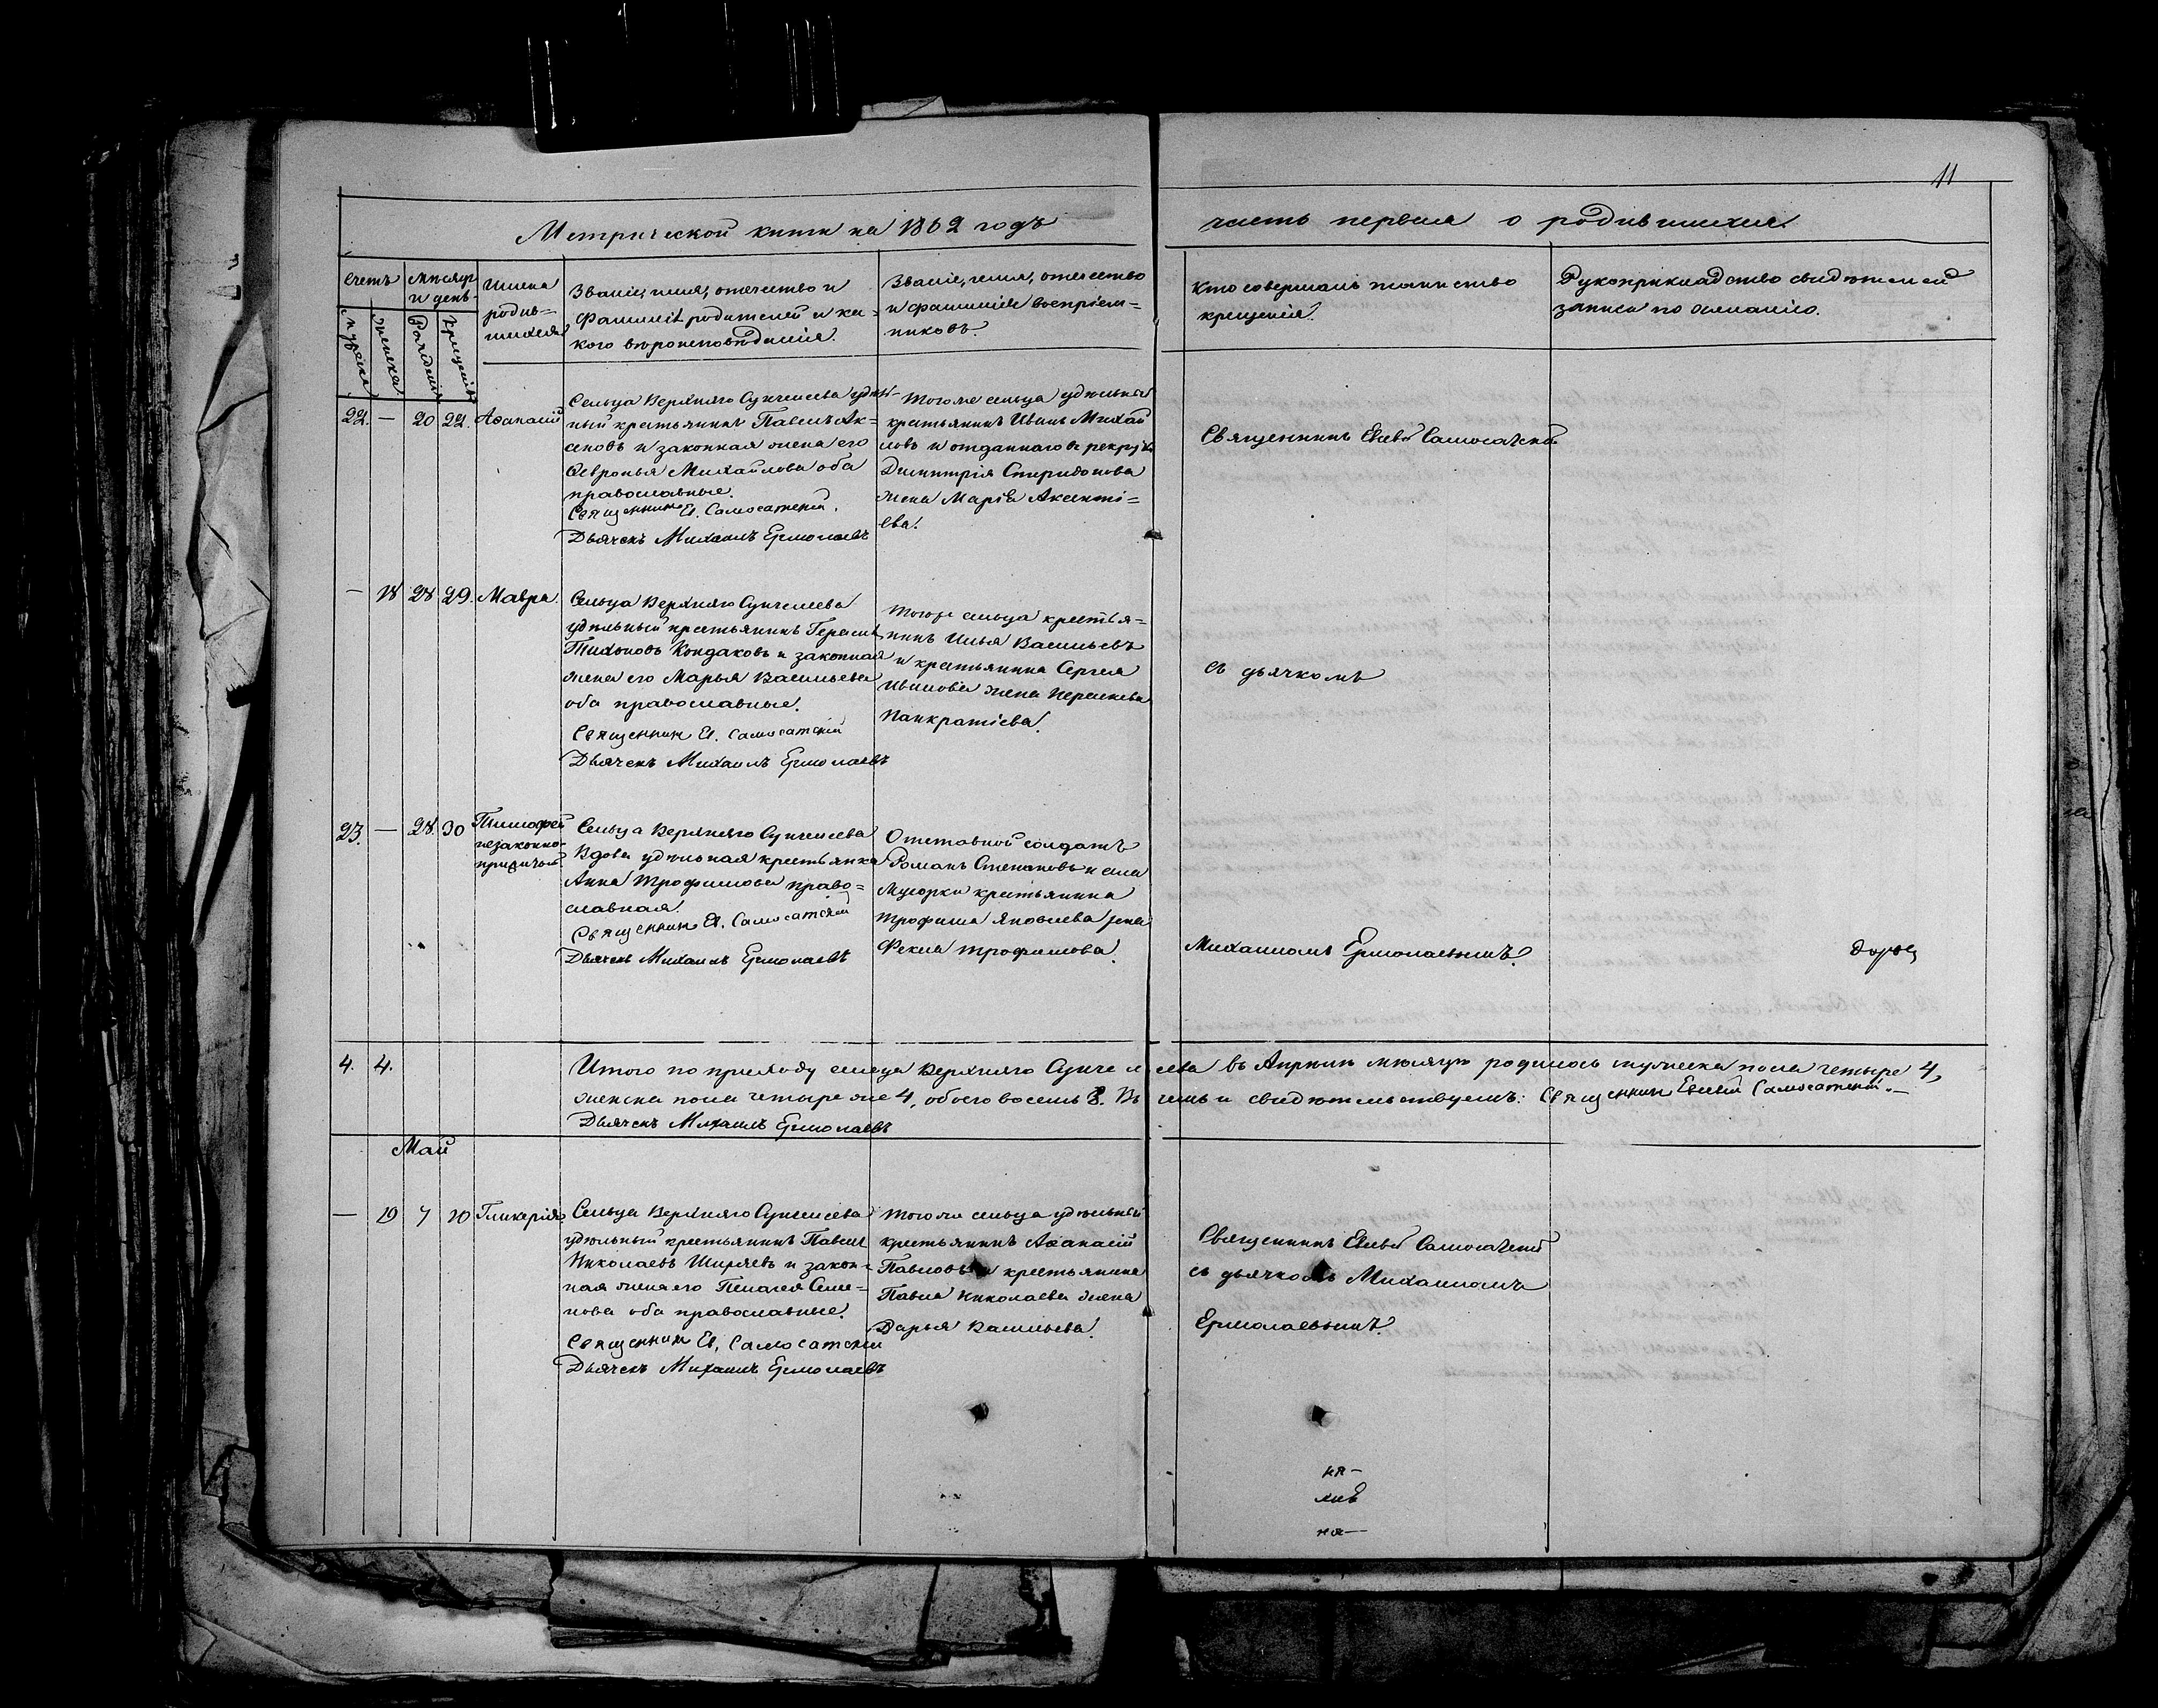 11
Метрической книги на 1862 годъ
часть первая о родившихся.
Счетъ
Мѣсяцъ и день
мужеска
женска
Рожденія
Крещенія
Имена
родив=
шихся
Званіе, имя, отчество и
фамилія родителей и ка=
кого вѣроисповѣданія.
Званіе, имя, отчество
и фамилія воспріем=
никовъ.
Кто совершалъ таинство
крещенія.
Рукоприкладство свидѣтелей
записи по желанію.
22. — 20 22. Аѳанасій
Сельца Верхняго Сунчелеева удѣль-
ный крестьянинъ Павелъ Ак=
сеновъ и законная жена его
Ѳевронья Михайлова оба
православные.
Священникъ Ев. Самосатскій.
Дьячекъ Михаилъ Ермолаевъ
Того же сельца удѣльный
крестьянинъ Иванъ Михай
ловъ и отданнаго въ рекруты
Димитрія Спиридонова
жена Марія Аксенті=
ева.
Священникъ Евсевій Самосатскій
— 18 28 29. Мавра.
Сельца Верхняго Сунчелеева
удѣльный крестьянинъ Герасимъ
Тихоновъ Кондаковъ и законная
жена его Марья Васильева
оба православные.
Священникъ Ев. Самосатскій
Дьячекъ Михаилъ Ермолаевъ
Тогоже сельца крестья=
нинъ Илья Васильевъ
и крестьянина Сергея
Иванова жена Параскева
Панкратіева.
съ дьячкомъ
23. — 28. 30 Тимофей
незаконно-
прижитый
Сельца Верхняго Сунчелеева
Вдова удѣльная крестьянка
Анна Трофимова право=
славная.
Священникъ Ев. Самосатскій
Дьячекъ Михаилъ Ермолаевъ
Отставной солдатъ
Романъ Степановъ и села
Мусорки крестьянина
Трофима Яковлева жена
Фекла Трофимова.
Михаиломъ Ермолаевымъ.
4. 4.
Итого по приходу сельца Верхняго Сунчелеева въ Апрѣлѣ мѣсяцѣ родилось мужеска пола четыре 4,
женска пола четыре же 4, обоего восемь 8. Въ чемъ и свидѣтельствуемъ: Священникъ Евсевій Самосатскій.—
Дьячекъ Михаилъ Ермолаевъ
Май
— 19 7 10 Гликерія
Сельца Верхняго Сунчелеева
удѣльный крестьянинъ Павелъ
Николаевъ Ширяевъ и закон=
ная жена его Пелагея Семе=
нова оба православные.
Священникъ Ев. Самосатскій
Дьячекъ Михаилъ Ермолаевъ
Того же сельца удѣльный
крестьянинъ Аѳанасій
Павловъ и крестьянина
Павла Николаева жена
Дарья Васильева.
Священникъ Евсевій Самосатскій
съ дьячкомъ Михаиломъ
Ермолаевымъ.